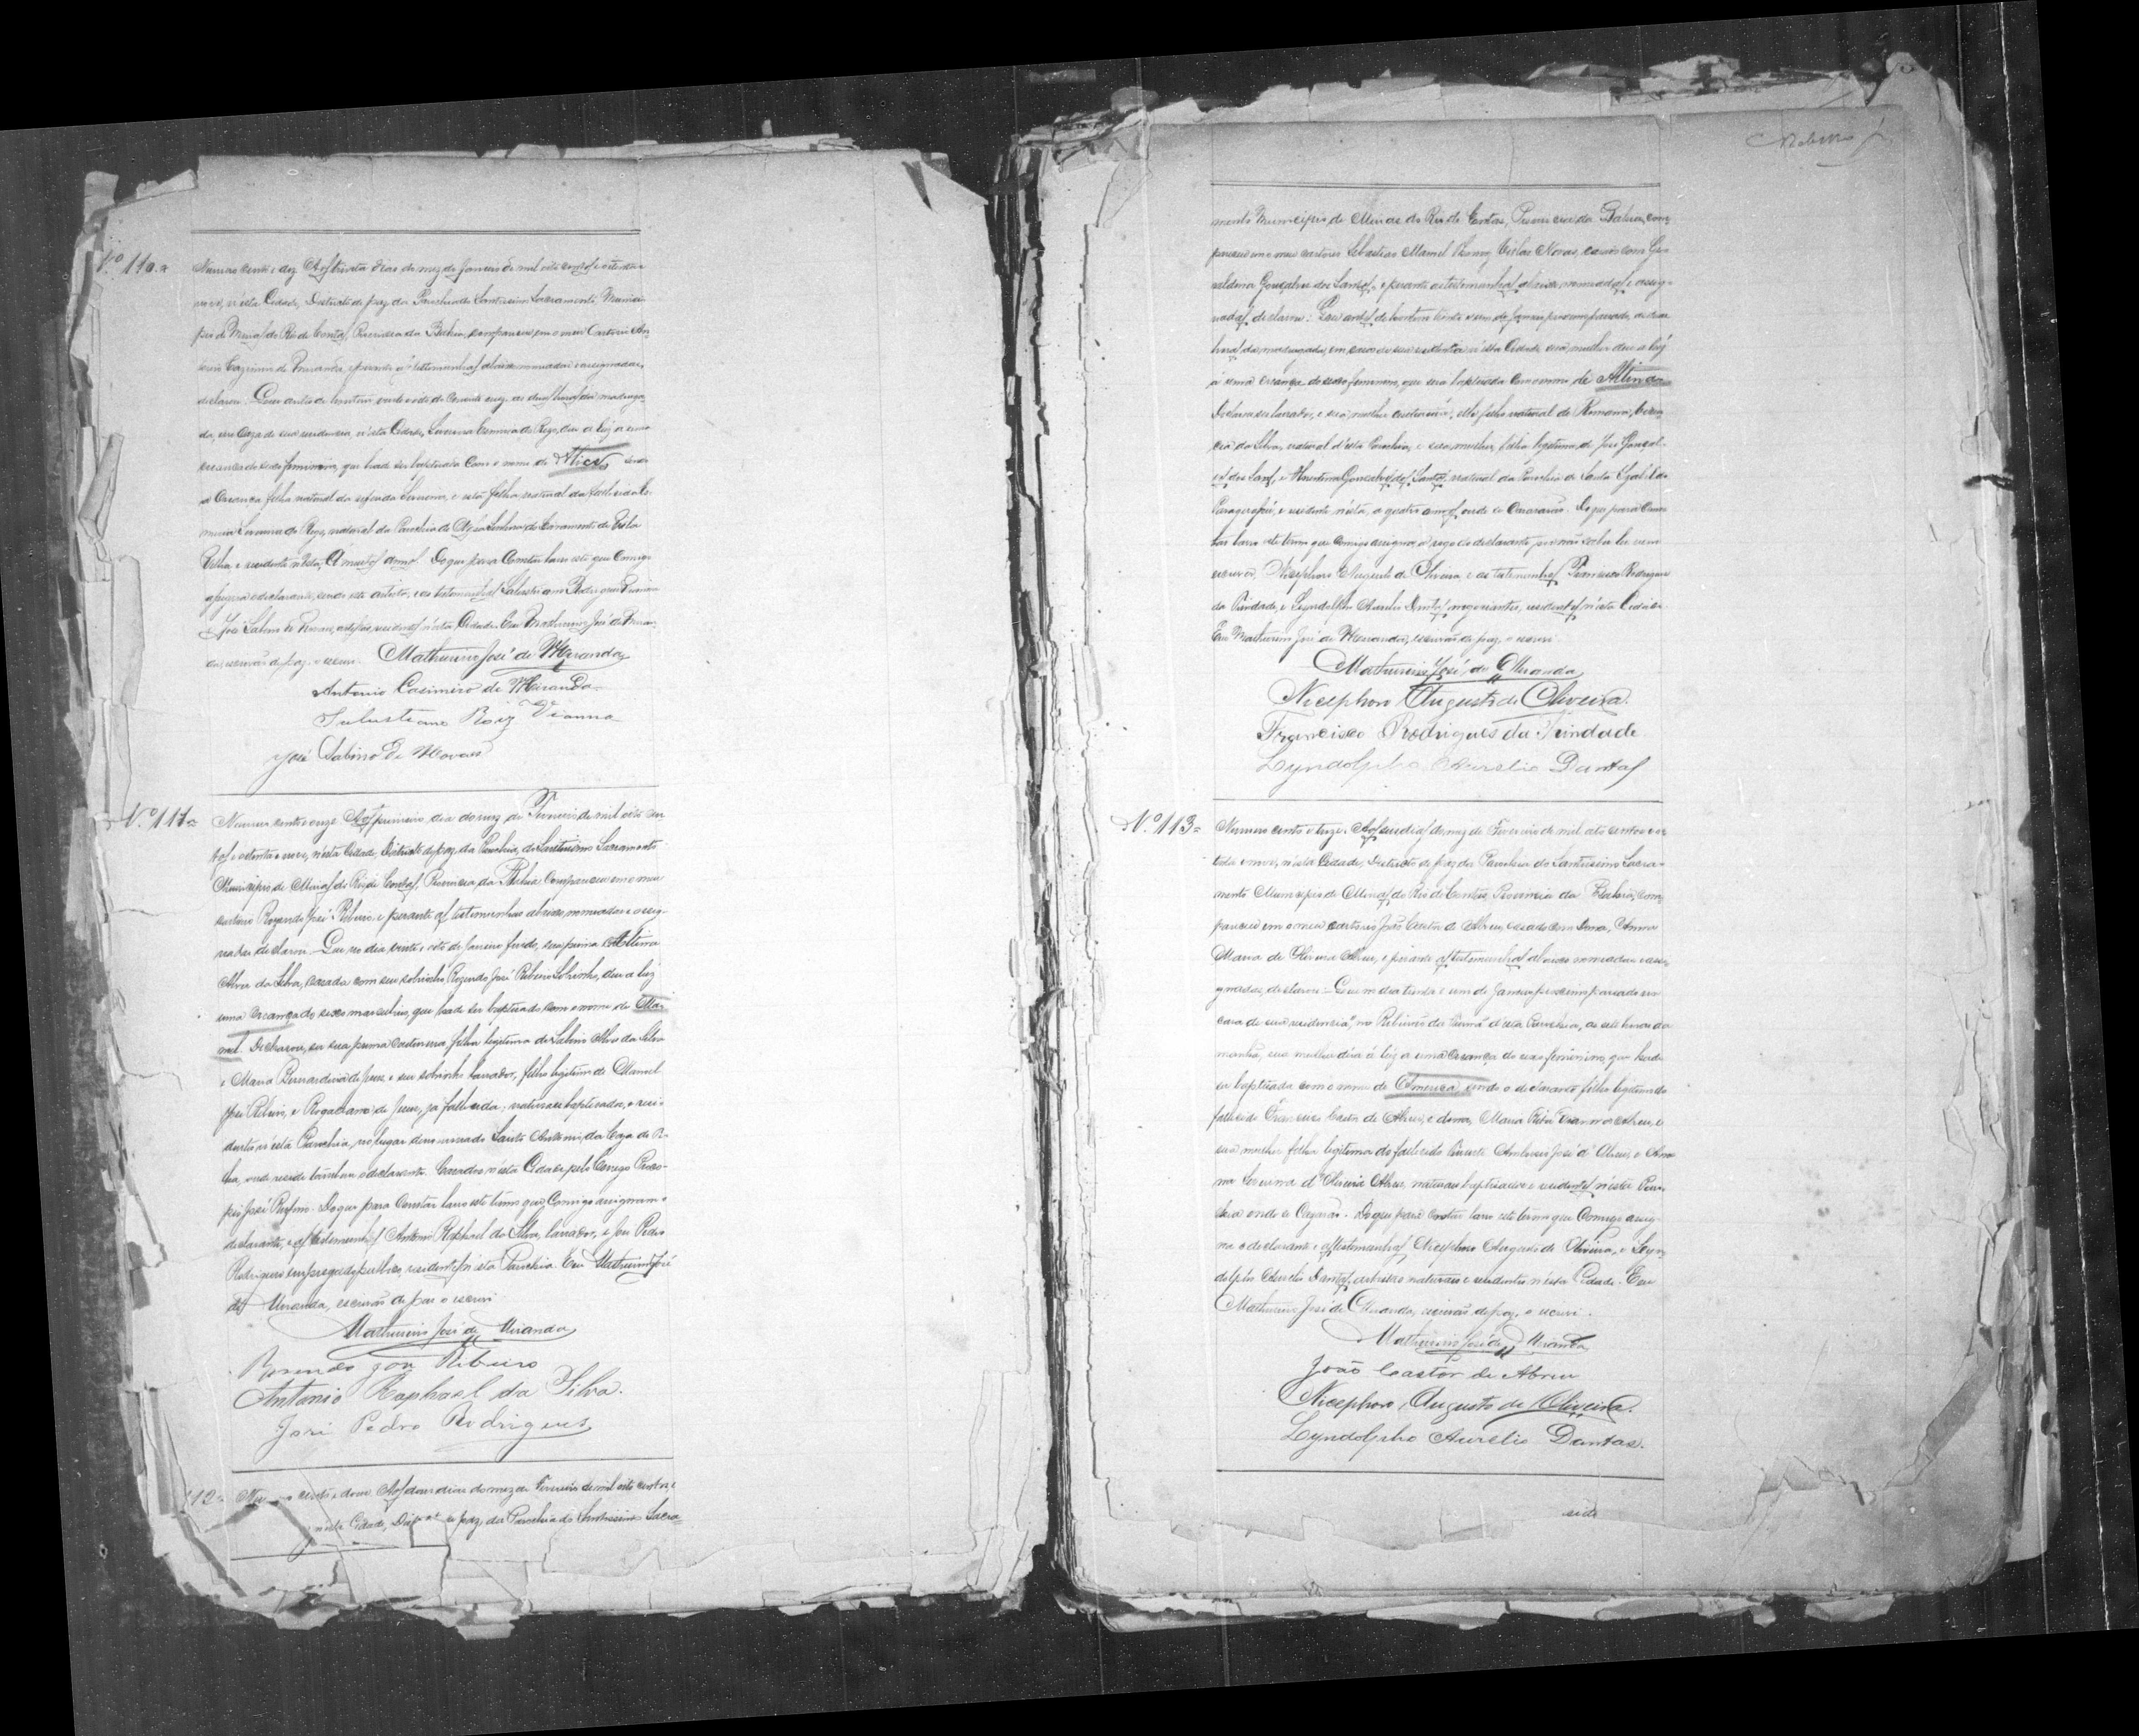 Nº 110=
Numero cento e dez Aos trinta dias do mez de Janeiro de mil oito centos e oitenta e
nove, n'esta Cidade, Districto de paz da Parochia do Santissimo Sacramento, Municí-
pio de Minas do Rio de Contas, Provincia da Bahia, compareceu em o meu Cartorio An-
tonio Cazimiro de Miranda, e perante as testemunhas abaixo nomeadas e assignadas,
declarou: Que antes de hontem vinte e oito do corrente mez as duas horas da madruga-
da, em Caza de sua residencia, n'esta Cidade, Severina do Rego, deu a luz a uma
creança do sexo feminino, que hade ser baptisada Com o nome de Alice, sendo
a Creança filha natural da referida Severina, e esta filha natural da fallecida
do Rego, natural da Parochia de Nossa Senhora do Livramento de Villa
Velha e residente n'esta, A muitos annos. Do que para Constar lavro este que Comigo
assigna o declarante, sendo este artista, e as testemunhas Salustiano Rodrigues Vianna
e José Sabino de Novaes, residentes n'esta Cidade. Eu Mathurino José de Miran-
da, escrivão de paz o escrevi. Mathurino José de Miranda
Antonio Casimiro de Miranda
Salustiano Roiz Vianna
José Sabino de Novaes
Nº 111=
Numero cento e onze Aos primeiro dia do mez de Fevereiro de mil oito cen-
tos e oitenta e nove, n'esta Cidade, Districto de paz da Parochia, do Santissimo Sacramento
Municipio de Minas do Rio de Contas, Provincia da Bahia Compareceu em o meu
cartorio Rozendo José Ribeiro, e perante as testemunhas abaixo, nomeadas e assig-
nadas declarou Que no dia vinte e oito de Janeiro findo, sua prima Altina
Alves da Silva, casada com seu sobrinho Rozendo José Ribeiro Sobrinho, deu a luz
uma creança do sexo masculino, que hade ser baptisado com o nome de Ma-
noel. Declarou, ser sua prima Costureira, filha legitima de Sabino Alves da Silva
e Maria Bernardina de Jesus, e seu sobrinho lavrador, filho legitimo de Manoel
José Ribeiro, e Rogaciana de Jesus, ja fallecida, naturaes baptisados, e resi-
dentes n'esta Parochia, no lugar denominado Santo Antonio da
onde reside tambem o declarante. Casados n'esta Cidade pelo Conego
José Rufino. Do que para Constar lavro este termo que Comigo assignam o
declarante, e as testemunhas Antonio Raphael da Silva, lavrador, e José Pedro
Rodrigues empregado publico, residentes n'esta Parochia. Eu Mathurino José
de Miranda, escrivão de paz o escrevi.
Mathurino José de Miranda
Rosendo José Ribeiro
Antonio Raphael da Silva.
José Pedro Rodrigues
112=
cento e doze Aos dous dias do mez de Fevereiro de mil oito centos, e
n'esta Cidade, de paz, da Parochia do Santissimo Sacra=
mento Municipio de Minas do Rio de Contas, Provincia da Bahia, com-
pareceu em o meu cartorio Sebastião Manoel Novas, casado com
Gonçalves dos Santos, e perante as testemunhas abaixo, nomeadas e assig-
nadas, declarou: Que antes de hontem trinta e um de Janeiro proximo passado,
horas da madrugada, em casa de sua residentia n'esta Cidade, sua mulher deu a luz
a uma creança do sexo feminino, que sera baptisada Com o nome de Altina
Declarou ser lavrador, e sua mulher costureira, elle filho natural de Romana
da Silva, natural d'esta Parochia, e sua mulher, filha legitima de José Gonçal-
ves dos Santos, e Gonçalves dos Santos, natural da Parochia de Santa Izabel do
Paraguassú, e residente n'esta, a quatro annos, onde se Casarão. Do que para Cons-
tar lavro este termo que Comigo assigna, a rogo do declarante, por não saber ler nem
escrever, Nicephoro Augusto de Oliveira e as testemunhas Francisco Rodrigues
da Trindade, e Lyndolpho Aurelio Dantas, negociantes, residentes n'esta Cidade
Eu Mathurino José de Miranda, escrivão de paz, o escrevi.
Mathurino José de Miranda
Nicephoro Augusto de Oliveira.
Francisco Rodrigues da Trindade
Lyndolpho Aurelio Dantas
Nº 113=
Numero cento e treze. Aos seis dias do mez de Fevereiro de mil oito centos e oi-
tenta e nove, n'esta Cidade, Districto de paz da Parochia do Santissimo Sacra-
mento Municipio de Minas do Rio de Contas, Provincia da Bahia, com-
pareceu em o meu cartorio João Castor de Abreu, casado com Dona, Anna
Maria de Oliveira Abreu, e perante as testemunhas abaixo nomeadas e assi-
gnadas, declarou: Que no dia trinta e um de Janeiro proximo passado em
casa de sua residencia, no Ribeirão d'esta Parochia, as sete horas da
manhã, sua mulher déra á luz a uma Creança do sexo feminino, que hade
ser baptisada com o nome de America, sendo o declarante filho legitimo do
fallecido Francisco Castor de Abreu, e dona, Maria Rita Abreu, e
sua mulher filha legitima do fallecido Ambrosio José d' Abreu, e An-
na d' Oliveira Abreu, naturaes baptisados e residentes n'esta Paro-
chia onde se Cazarão. Do que para Constar lavro este termo que Comigo assig-
na o declarante e as testemunhas, Nicephoro Augusto de Oliveira, e Lyn-
dolpho Aurelio Dantas, artistas naturaes e residentes n'esta Cidade. Eu
Mathurino José de Miranda, escrivão de paz, o escrevi.
Mathurino José de Miranda
João Castor de Abreu
Nicephoro Augusto de Oliveira.
Lyndolpho Aurelio Dantas.